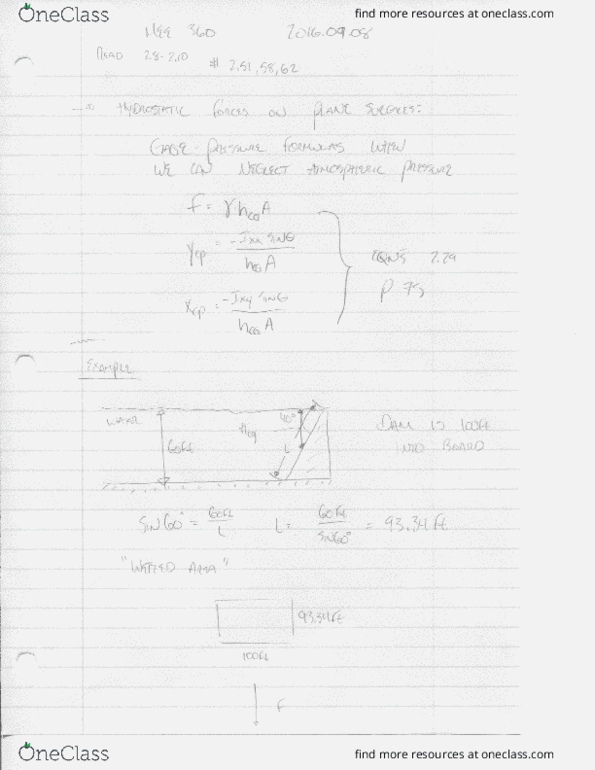 OneClass find more resources at oneclass.com
MEE 360 2016.09.08
READ 2.8-2.10 # 2.51,58,62
HYDROSTATIC FORCES ON PLANE SURFACES:
GAGE-PRESSURE FORMULAS WHEN
WE CAN NEGLECT ATMOSPHERIC PRESSURE
F = γhcgA
ycp = -Ixx sinθ / hcgA
EQNS 2.29
P 75
xcp = -Ixy sinθ / hcgA
EXAMPLE
WATER
60ft
hcg
L
DAM IS 100ft
INTO BOARD
sin60° = 60ft / L L = 60ft / sin60° = 93.34 ft.
"WETTED AREA"
93.34ft
100ft
F
OneClass find more resources at oneclass.com